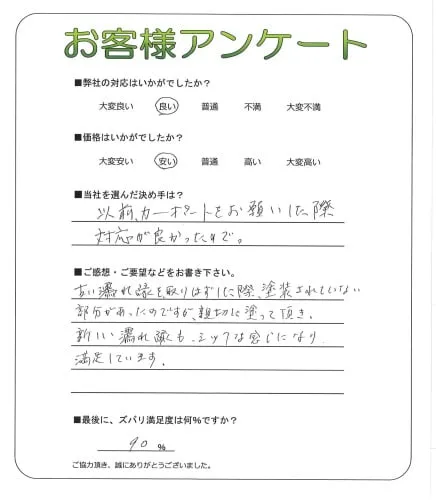 お客様アンケート
■弊社の対応はいかがでしたか？
大変良い 良い 普通 不満 大変不満
■価格はいかがでしたか？
大変安い 安い 普通 高い 大変高い
■当社を選んだ決め手は？
以前、カーポートをお願いした際
対応が良かったので。
■ご感想・ご要望などをお書き下さい。
古い濡れ縁を取りはずした際、塗装されていない
部分があったのですが、親切に塗って頂き。
新しい濡れ縁も、シックな感じになり
満足しています。
■最後に、ズバリ満足度は何％ですか？
90 %
ご協力頂き、誠にありがとうございました。